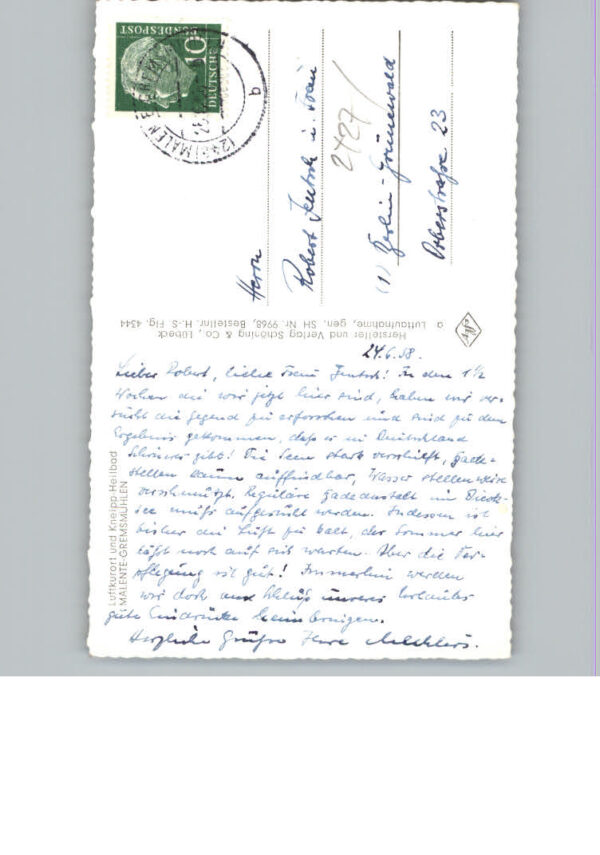 24.6.58.
Lieber Robert, liebe Frau Jentsch! In den 1 1/2
Wochen die wir jetzt hier sind, haben wir ver-
sucht die Gegend zu erforschen und sind zu dem
Ergebnis gekommen, daß es in Deutschland
Schöneres gibt! Die Seen stark verschilft, Bade-
stellen kaum auffindbar, Wasser stellenweise
verschmutzt. Reguläre Badeanstalt im Dieck-
see muß aufgesucht werden. Indessen ist
bisher die Luft zu kalt, der Sommer hier
läßt noch auf sich warten. Aber die Ver-
pflegung ist gut! Immerhin werden
wir doch am Schluß unseres Urlaubs
gute Eindrücke heimbringen.
Herzliche Grüße Ihre
Luftkurort und Kneipp-Heilbad
MALENTE-GREMSMÜHLEN
Hersteller und Verlag Schöning & Co., Lübeck
a Luftaufnahme, gen. SH Nr. 9968, Bestellnr. H.-S Flg. 4344
Herrn
Robert Jentsch u. Frau
2427/
(1) Berlin-Grunewald
23
DEUTSCHE
BUNDESPOST
10
b